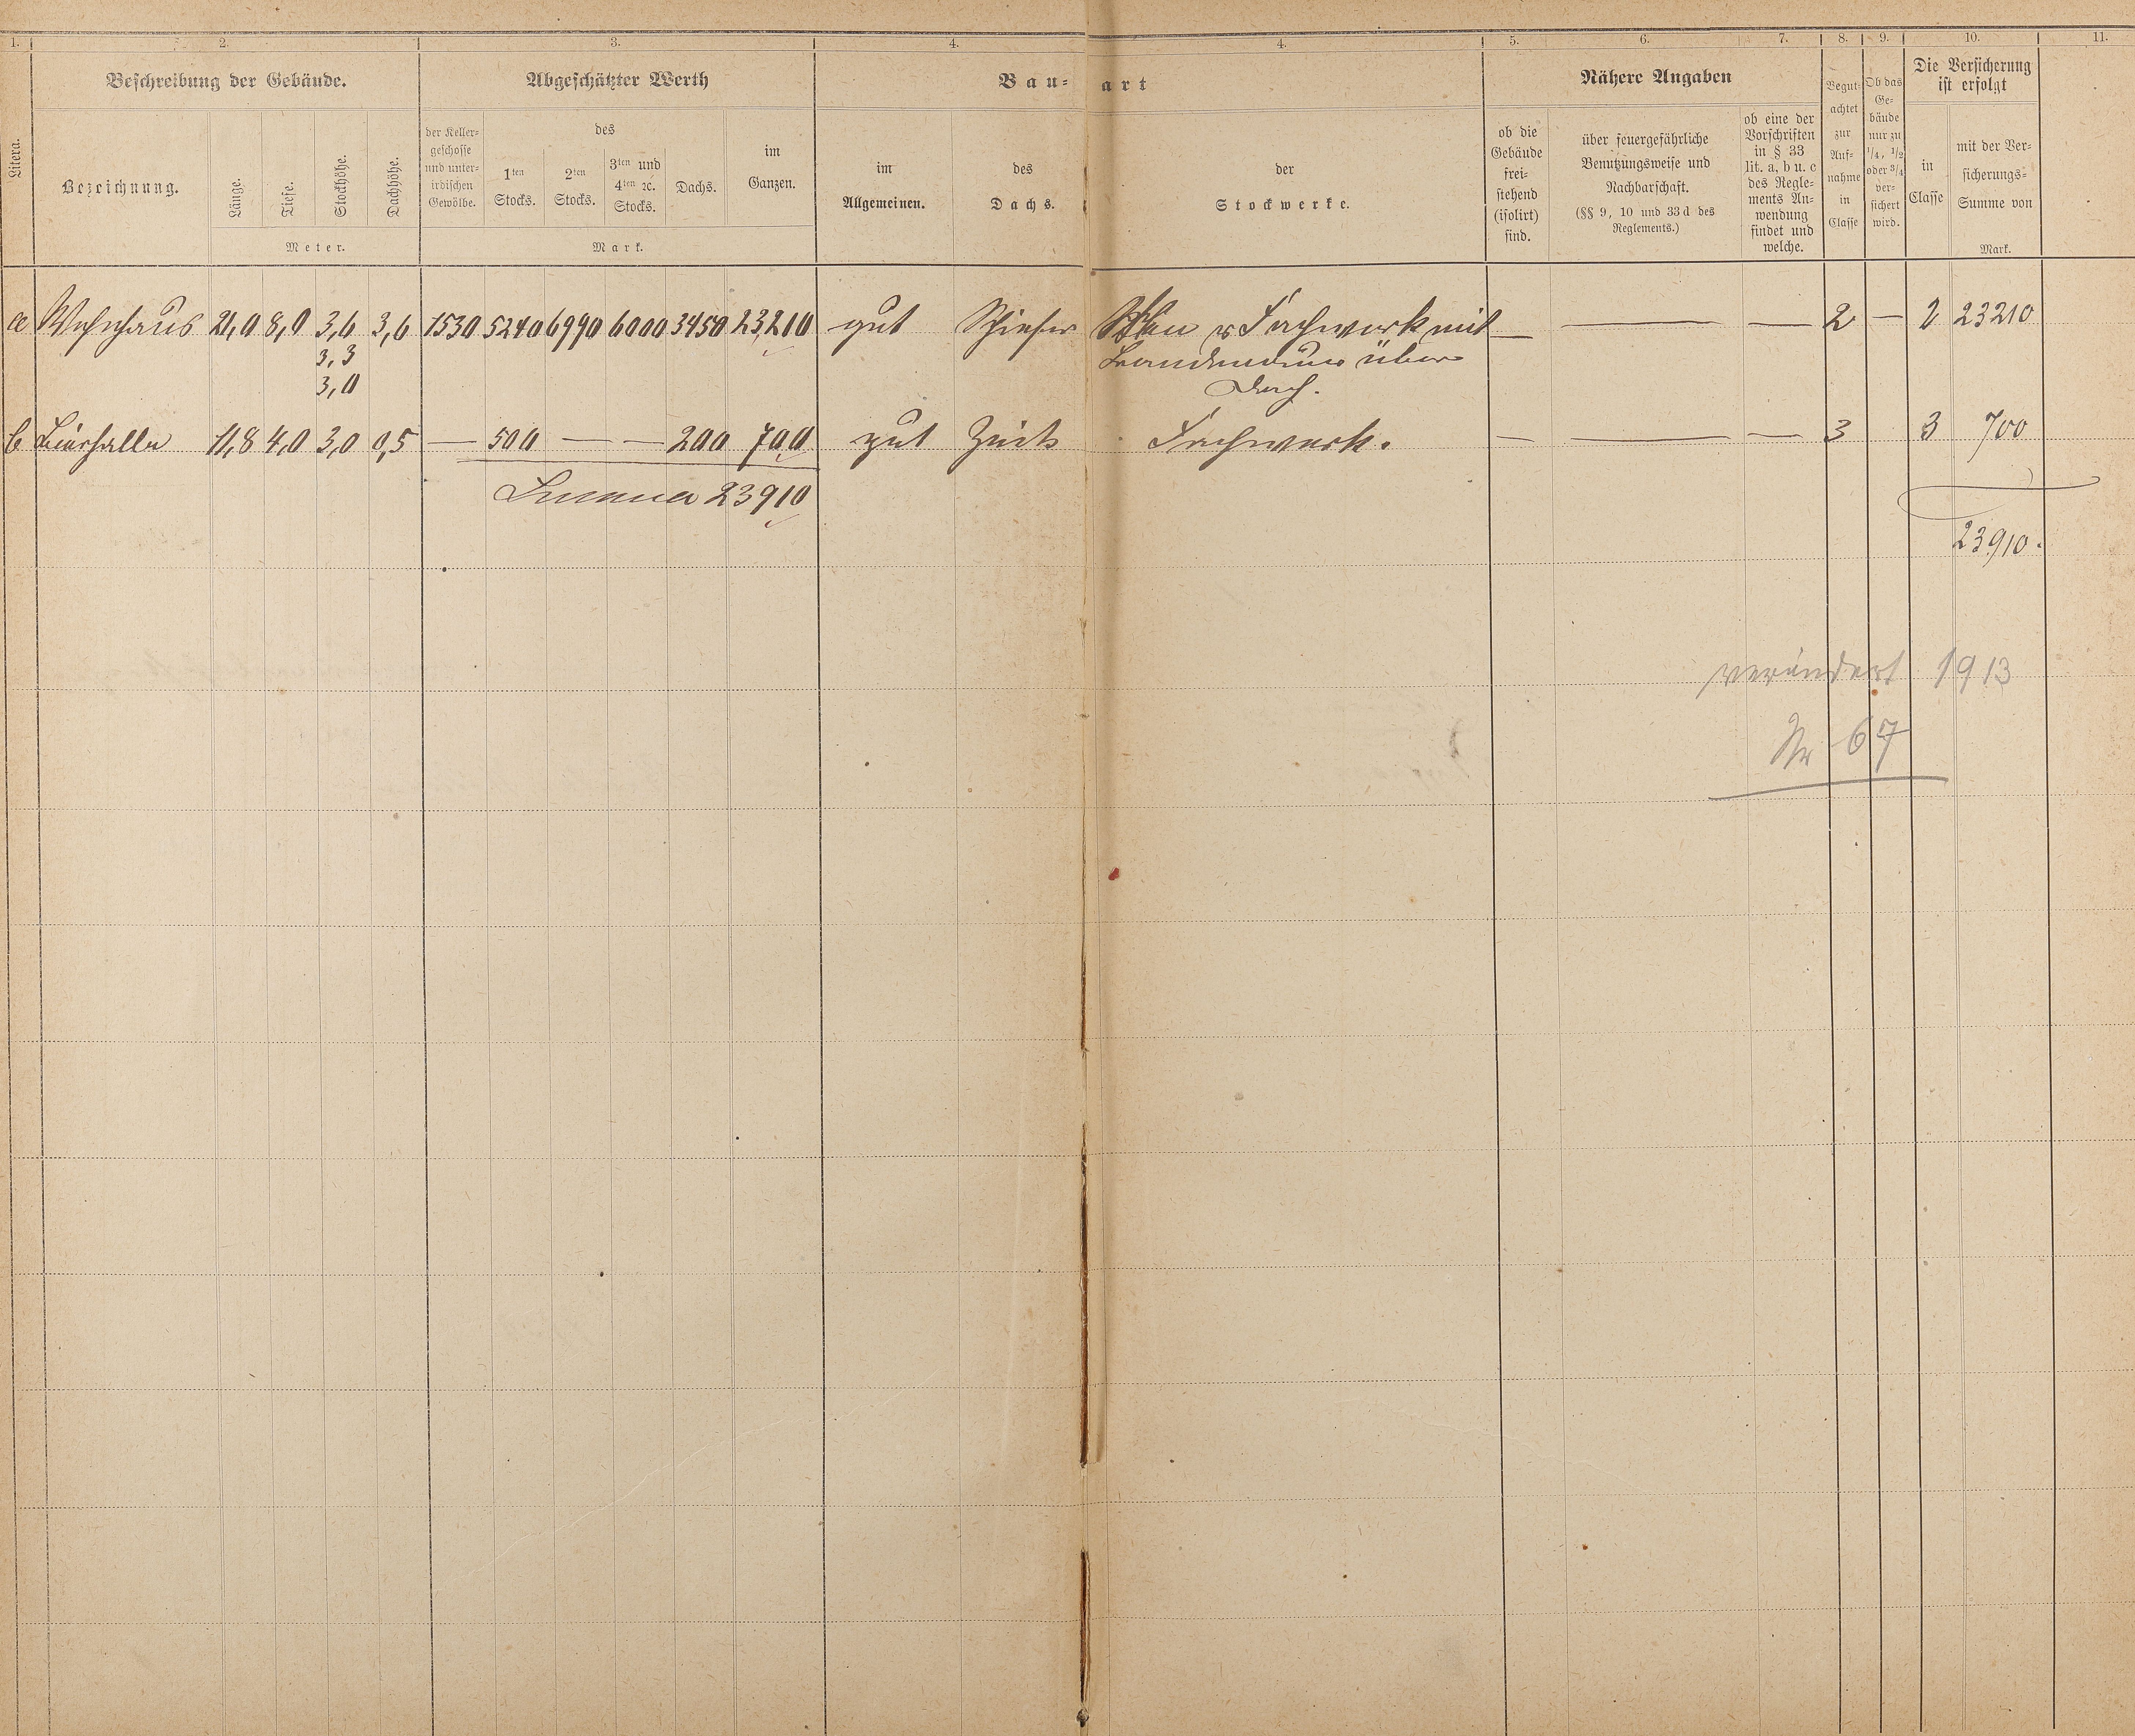 1. 2. 3. 4. 4. 5. 6. 7. 8. 9. 10. 11.
Beschreibung der Gebäude.
Abgeschätzter Werth
Bau-art
Nähere Angaben
Litera.
Bezeichnung.
Länge.
Tiefe.
Stockhöhe.
Dachhöhe.
Meter.
der Keller-
geschosse
und unter-
irdischen
Gewölbe.
des
1ten
Stocks.
2ten
Stocks.
3ten und
4ten ꝛc.
Stocks.
Dachs.
im
Ganzen.
Mark.
im
Allgemeinen.
des
Dachs.
der
Stockwerke.
ob die
Gebäude
frei-
stehend
(isolirt)
sind.
über feuergefährliche
Benutzungsweise und
Nachbarschaft.
(§§ 9, 10 und 33 d des
Reglements.)
ob eine der
Vorschriften
in § 33
lit. a, b u. c
des Regle-
ments An-
wendung
findet und
welche.
Begut-
achtet
zur
Auf-
nahme
in
Classe
Ob das
Ge-
bäude
nur zu
1/4, 1/2
oder 3/4
ver-
sichert
wird.
Die Versicherung
ist erfolgt
in
Classe
mit der Ver-
sicherungs-
Summe von
Mark.
a Wohnhaus 21,0 8,0 3,6 3,6 1530 5240 6990 6000 3450 23210 gut Schiefer Fachwerk mit — — — 2 — 2 23210
3,3 Brandmauer über
3,0 Dach.
b Bierhalle 11,8 4,0 3,0 0,5 — 500 — — 200 700 gut Fachwerk. — — — 3 3 700
Summa 23910
23910.
verändert 1913
Nr 67